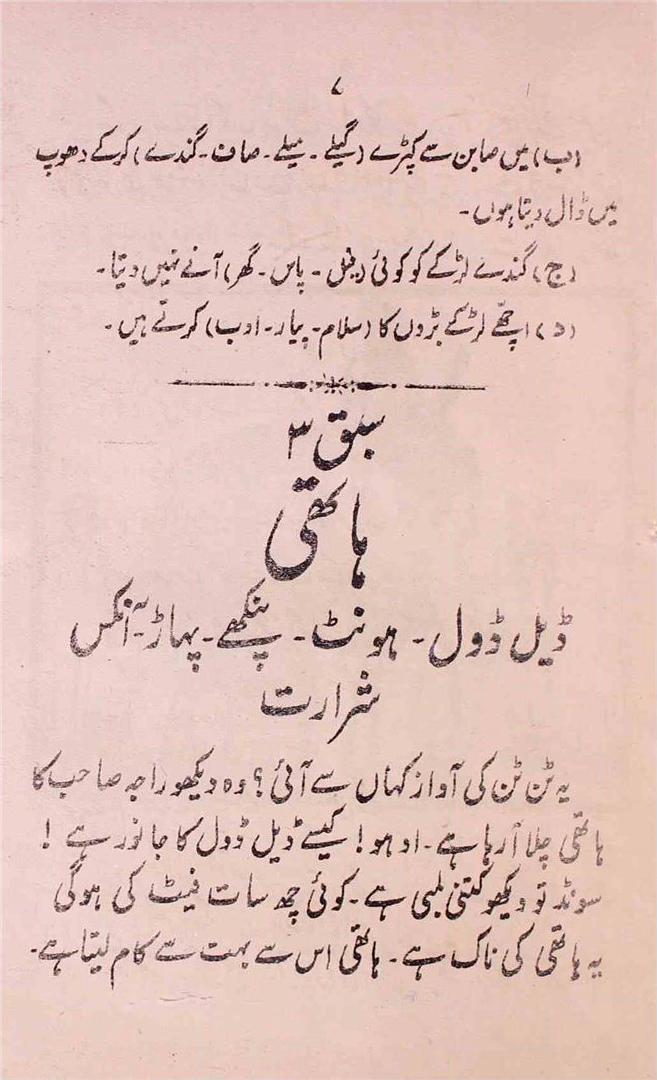 ۷
(ب) میں صابن سے کپڑے (گیلے - میلے - صاف - گندے) کرکے دھوپ
میں ڈال دیتا ہوں -
(ج) گندے لڑکے کو کوئی (بغل - پاس - گھر) آنے نہیں دیتا -
(د) اچھے لڑکے بڑوں کا (سلام - پیار - ادب) کرتے ہیں -
سبق ۳
ہاتھی
ڈیل ڈول - ہونٹ - پنکھے - پہاڑ - آنکس
شرارت
یہ ٹن ٹن کی آواز کہاں سے آئی؟ وہ دیکھو راجہ صاحب کا
ہاتھی چلا آ رہا ہے - اوہو! کیسے ڈیل ڈول کا جانور ہے!
سونڈ تو دیکھو کتنی لمبی ہے - کوئی چھ سات فیٹ کی ہوگی
یہ ہاتھی کی ناک ہے - ہاتھی اس سے بہت سے کام لیتا ہے -